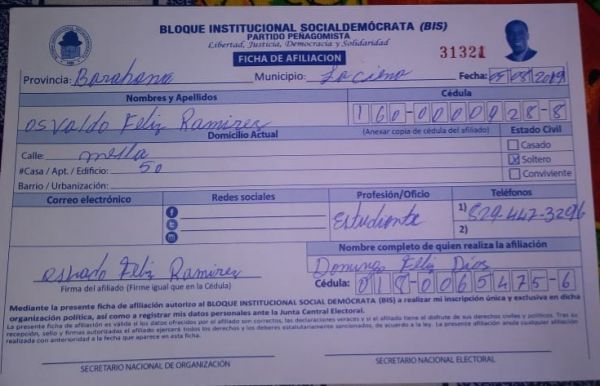 BLOQUE INSTITUCIONAL SOCIALDEMÓCRATA (BIS)
PARTIDO PEÑAGOMISTA
Libertad, Justicia, Democracia y Solidaridad
FICHA DE AFILIACION
31321
Provincia: Barahona Municipio: Fecha: 05/08/2019
Nombres y Apellidos Cédula
Osvaldo Feliz Ramirez 160-0000928-8
Domicilio Actual (Anexar copia de cédula del afiliado) Estado Civil
Calle: mella Casado
#Casa / Apt. / Edificio: 50 Soltero
Barrio / Urbanización: Conviviente
Correo electrónico Redes sociales Profesión/Oficio Teléfonos
Estudiante 1) 829-447-3296
2)
Nombre completo de quien realiza la afiliación
Domingo Feliz Dios
osvaldo Feliz Ramirez
Firma del afiliado (Firme igual que en la Cédula) Cédula: 018-0065475-6
Mediante la presente ficha de afiliación autorizo al BLOQUE INSTITUCIONAL SOCIAL DEMÓCRATA (BIS) a realizar mi inscripción única y exclusiva en dicha
organización política, así como a registrar mis datos personales ante la Junta Central Electoral.
La presente ficha de afiliación es válida si los datos ofrecidos por el afiliado son correctos, las declaraciones veraces y si el afiliado tiene el disfrute de sus derechos civiles y políticos. Tras su
recepción, sello y firmas autorizadas el afiliado ejercerá todos los derechos y los deberes estatutariamente sancionados, de acuerdo a la ley. La presente afiliación anula cualquier afiliación
realizada con anterioridad a la fecha que aparece en esta ficha.
SECRETARIO NACIONAL DE ORGANIZACIÓN SECRETARIO NACIONAL ELECTORAL